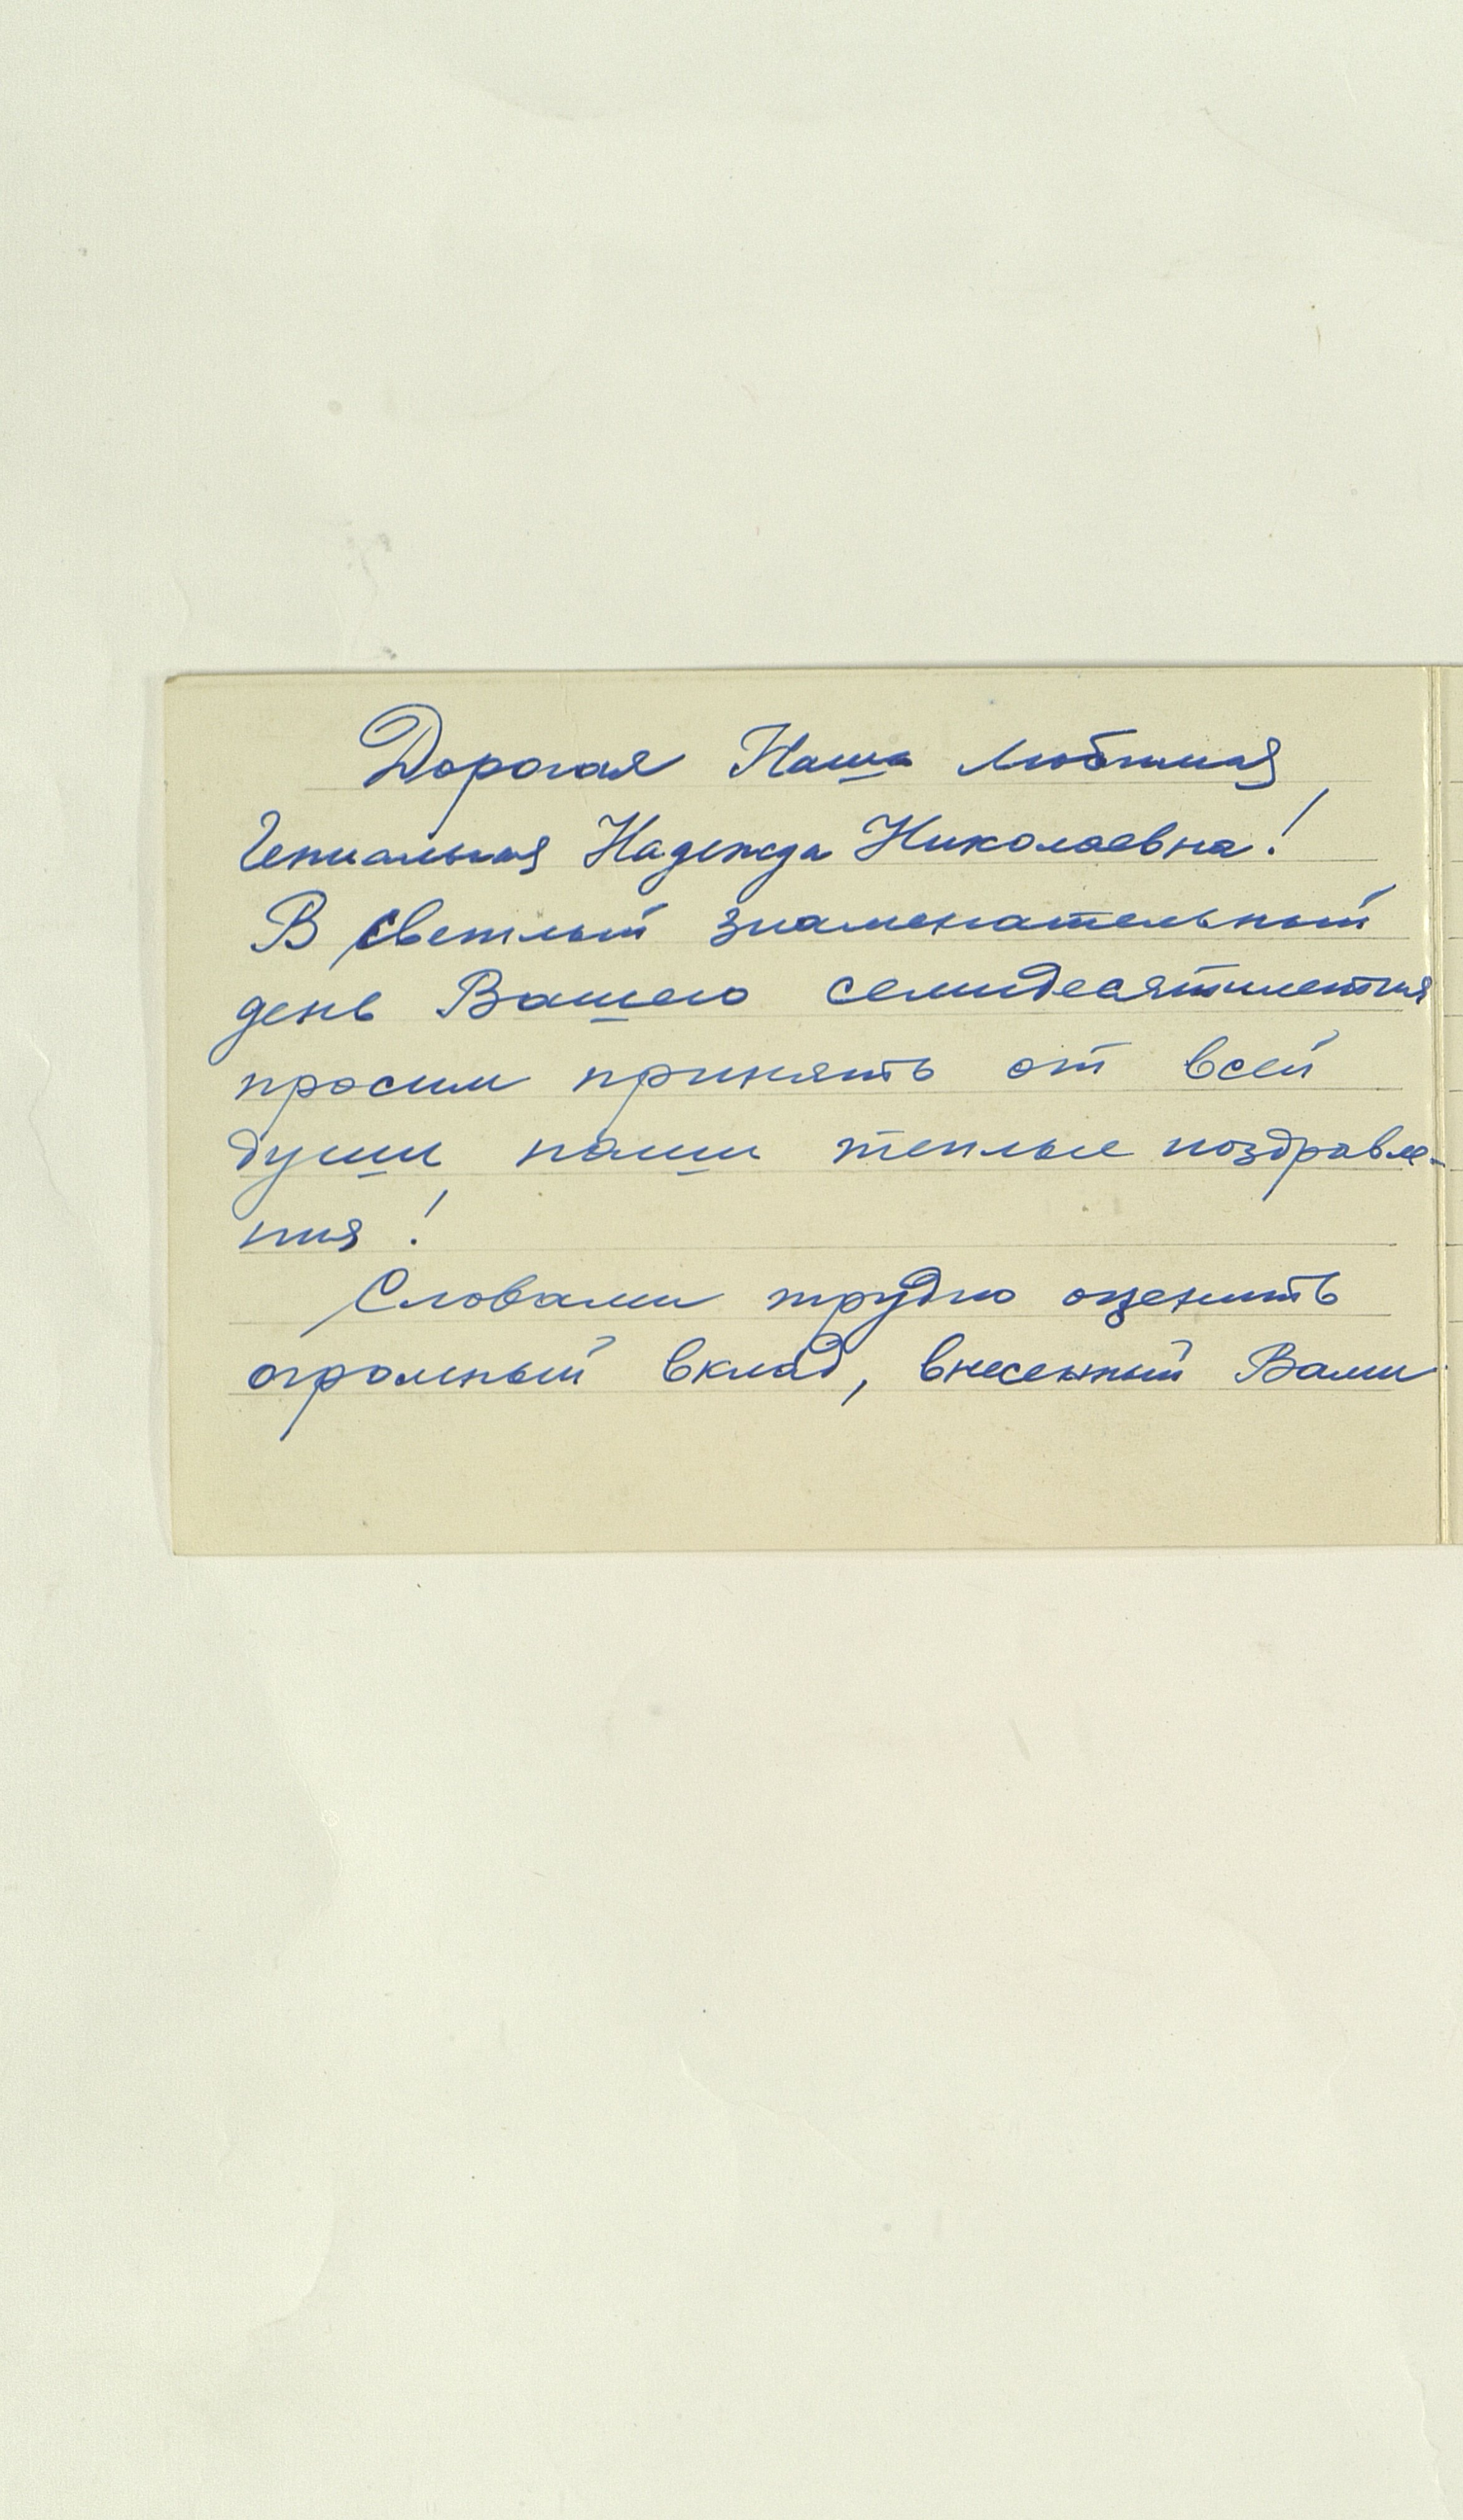 Дорогая Наша любимая
Гениальная Надежда Николаевна!
В светлый знаменательный
день Вашего семидесятилетия
просим принять от всей
души наши теплые поздравле-
ния!
Словами трудно оценить
огромный вклад, внесенный Вами